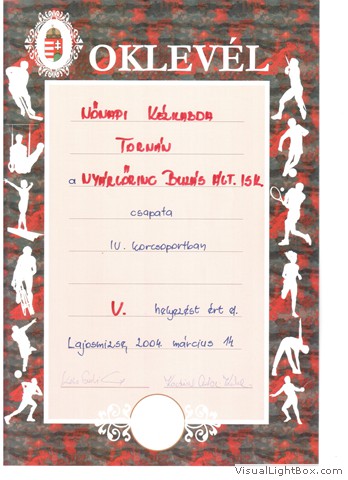 OKLEVÉL
NŐNAPI KÉZILABDA
TORNÁN
a NYÁRLŐRINC ÁLT. ISK
csapata
IV. korcsoportban
V. helyezést ért el.
Lajosmizse, 2004. március 14
VisualLightBox.com